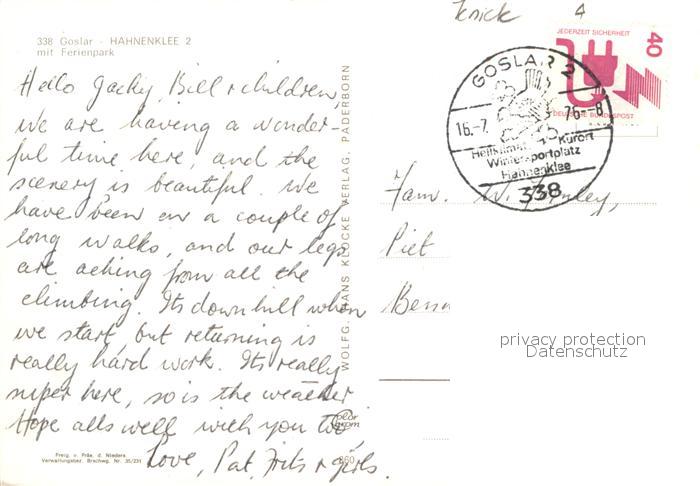 338 Goslar - HAHNENKLEE 2
mit Ferienpark
Hello Jacky, Bill + children,
we are having a wonder-
ful time here, and the
scenery is beautiful. We
have been on a couple of
long walks, and our legs
are aching from all the
climbing. Its downhill when
we start, but returning is
really hard work. Its really
super here, so is the weather
Hope alls well with you too,
Love, Pat, Frits + girls.
Freig. v. Präs. d. Nieders.
Verwaltungsbez. Brschwg. Nr. 35/231
WOLFG. HANS KLOCKE VERLAG, PADERBORN
color
crom
860
4
JEDERZEIT SICHERHEIT
40
DEUTSCHE BUNDESPOST
GOSLAR 2
16.-7. 76.-8
Heilklimat. Kurort
Wintersportplatz
Hahnenklee
338
Fam. W.
Piet
privacy protection
Datenschutz